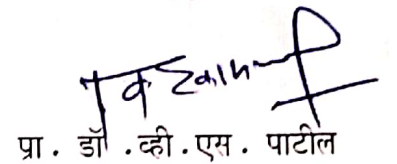 प्रा. डॉ.व्ही.एस. पाटील